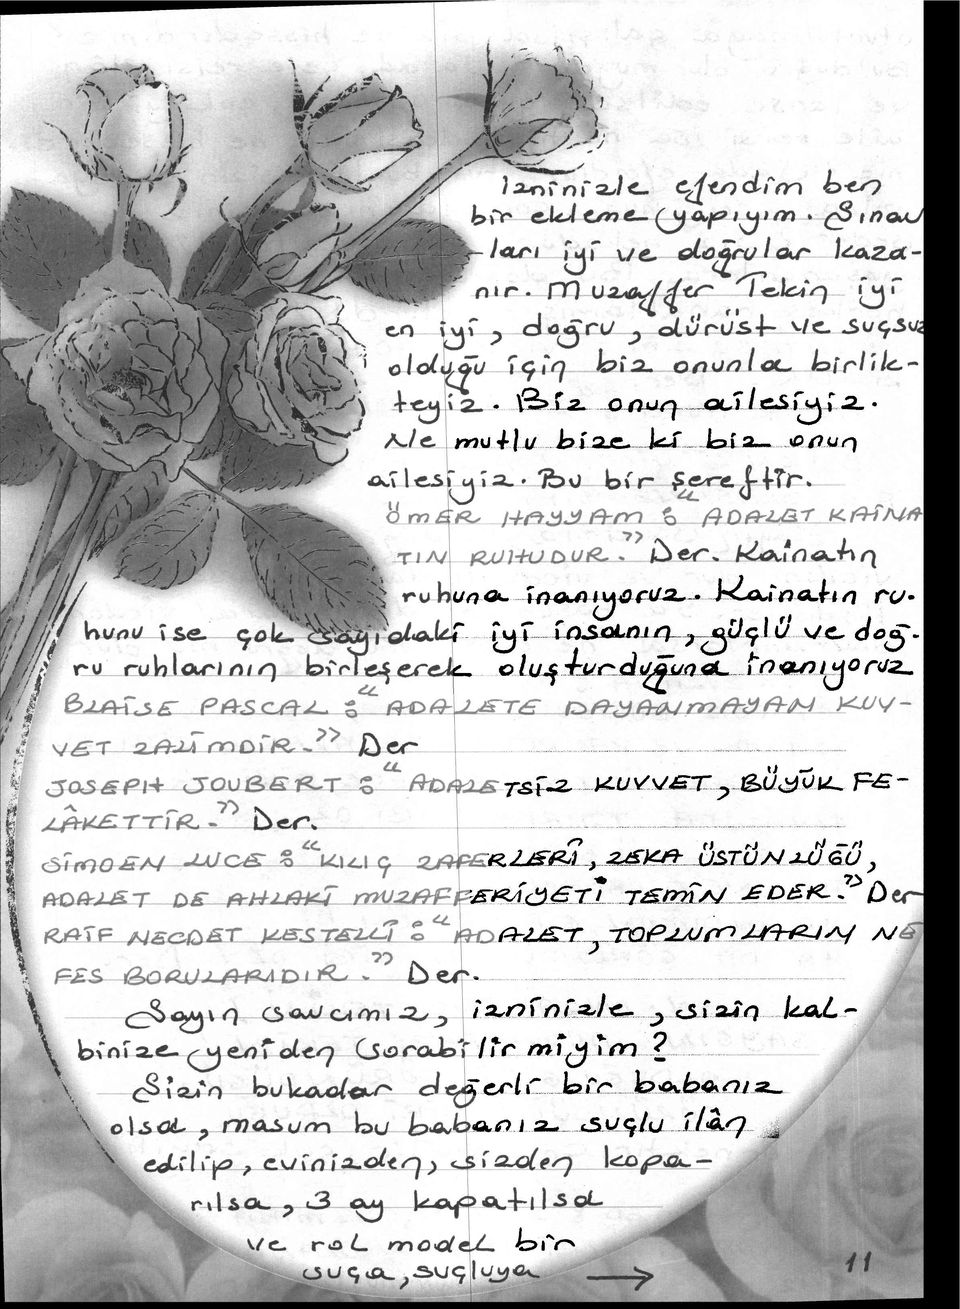 İzninizle efendim ben
bir ekleme yapıyım. Sınav
ları iyi ve doğrular kaza-
nır. Muzaffer Tekin iyi
en iyi, doğru, dürüst ve suçsuz
olduğu için biz onunla birlik-
teyiz. Biz onun ailesiyiz.
Ne mutlu bize ki biz onun
ailesiyiz. Bu bir şereftir.
ÖMER HAYYAM : "ADALET KAİNA
TIN RUHUDUR." Der. Kainatın
ruhuna inanıyoruz. Kainatın ru-
hunu ise çok sayıdaki iyi insanın, güçlü ve doğ-
ru ruhlarının birleşerek oluşturduğuna inanıyoruz
BLAİSE PASCAL : "ADALETE DAYANMAYAN KUV-
VET ZALİMDİR." Der
JOSEPH JOUBERT : "ADALETSİZ KUVVET, BÜYÜK FE-
LÂKETTİR." Der.
SİMOEN LUCE : "KILIÇ ZAFERLERİ, ZEKA ÜSTÜNLÜĞÜ,
ADALET DE AHLAKİ MUZAFFERİYETİ TEMİN EDER." Der
RAİF NECDET KESTELLİ : "ADALET, TOPLUMLARIN NE
FES BORULARIDIR." Der.
Sayın savcımız, izninizle, sizin kal-
binize yeniden sorabilir miyim?
Sizin bukadar değerli bir babanız
olsa, masum bu babanız suçlu ilân
edilip, evinizden, sizden kopa-
rılsa, 3 ay kapatılsa
ve rol model bir
suça, suçluya →
11